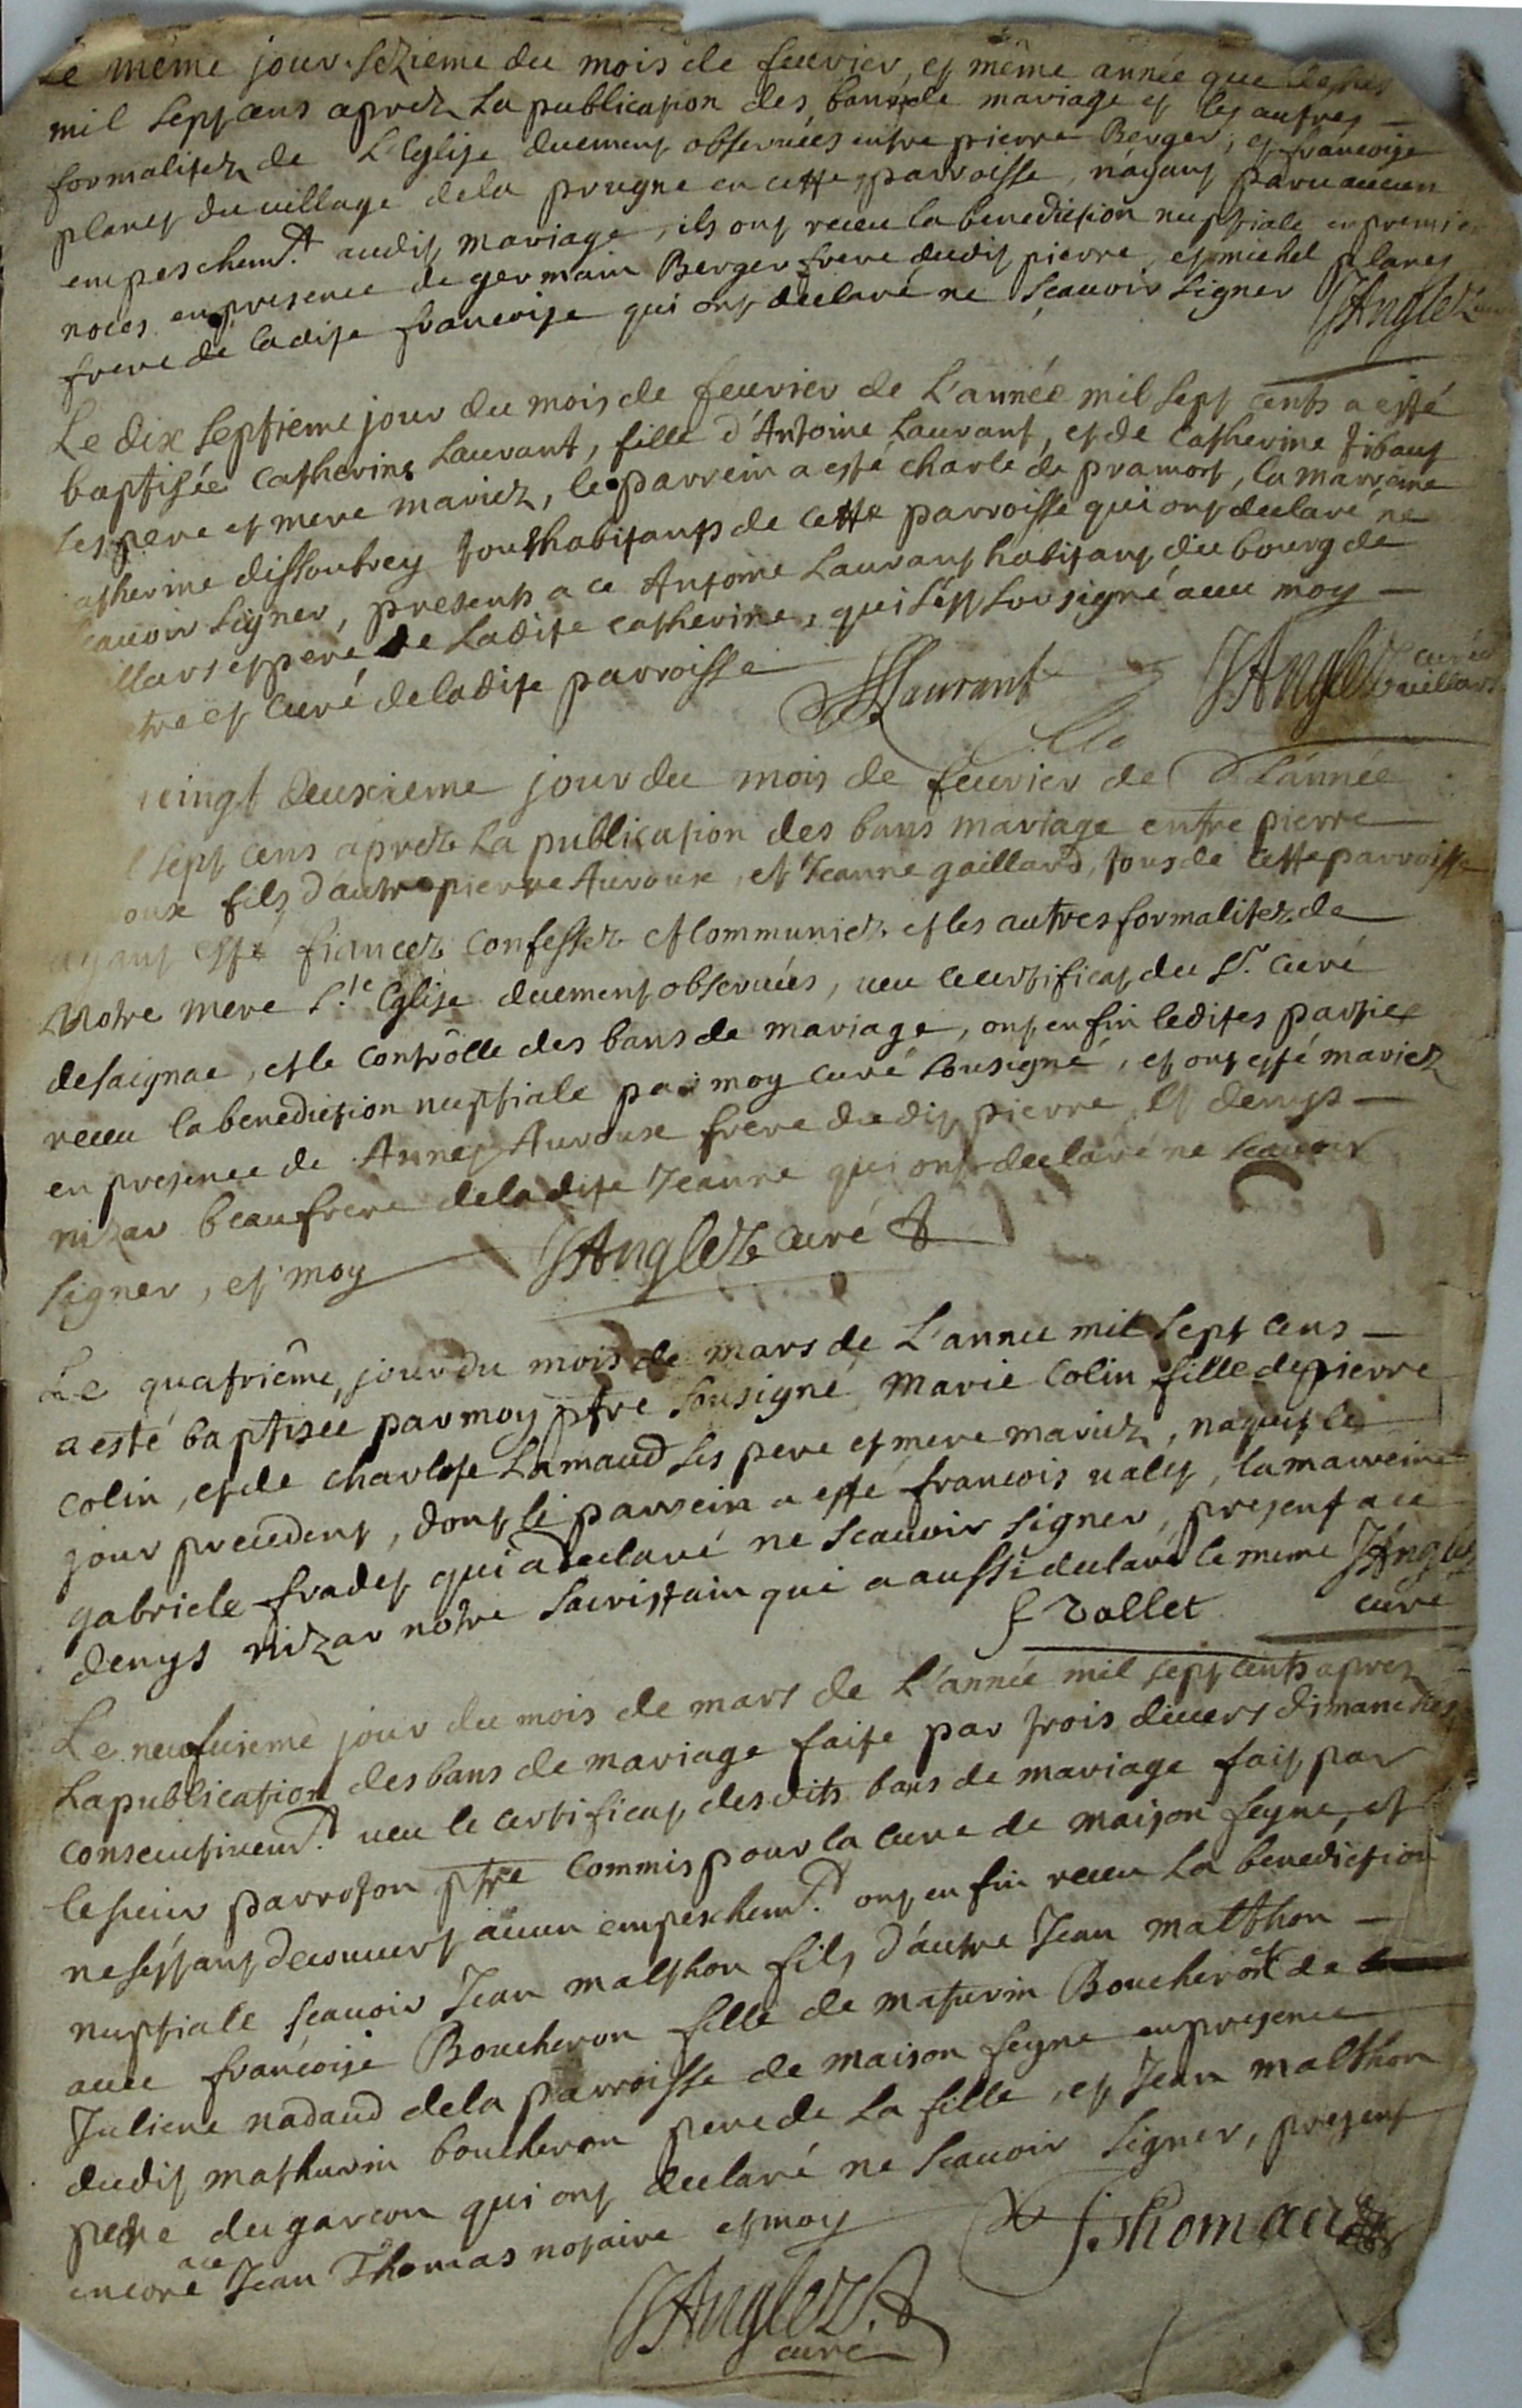 Le même jour sezieme du mois de feuvrier, et même année que dessus
mil sept cens aprez La publication des bans de mariage et les autres
formalitez de L'Eglise duement observées entre pierre Berger, et francoise
planet du village dela prugne en cette parroisse, n'ayant paru aucun
empeschemt. audit mariage, ils ont receu la benediction nuptiale en premier
noces en presence de germain Berger frere dudit pierre, et michel planet
frere de ladite francoise qui ont declaré ne scauoir signer JAnglez
Le dix septieme jour du mois de feuvrier de L'année mil sept cents a esté
baptisée Catherine Laurant, fille d'Antoine Laurant, et de Catherine tibaut
ses pere et mere mariez, le parrein a esté charle de pramort, la marreine
atherine dissoubrey tous habitants de cette parroisse qui ont declaré ne
cauoir signer, presents a ce Antoine Laurant habitant du bourg de
illars et pere de Ladite catherine, qui s'est sousigné auec moy
tre et curé de ladite parroisse LLaurant JAnglez curé de uillars
uingt deuxieme jour du mois de feuvrier de L'année
l sept cens aprez La publication des bans mariage entre pierre
oux fils d'autre pierre Auroux, et Jeanne gaillard, tous de cette parroisse
ayant esté fiancez confessez et communiez et les autres formalitez de
Notre mere Ste. Eglise duement observées, ueu le certificat du Sr. curé
de saignac, et le controlle des bans de mariage, ont enfin ledites parties
receu la benediction nuptiale par moy curé sousigné, et ont esté mariez
en presence de Annet Auroux frere dudit pierre, et denys
nizar beaufrere de ladite Jeanne qui ont declaré ne scauoir
signer, et moy JAnglez curé
Le quatrième jour du mois de mars de L'annee mil sept cens
a esté baptisée par moy ptre sousigné Marie Colin fille de pierre
Colin, et de charlote Lamaud ses pere et mere mariez, naquit le
jour precedent, dont le parrein a esté francois ualet, la marreine
gabriele fradet qui a declaré ne scauoir signer, present a ce
denys nizar notre sacristain qui a aussi declaré le meme JAnglez
f vallet curé
Le neufuieme jour du mois de mars de L'année mil sept cents apres
La publication des bans de mariage faite par trois diuers dimanches
consecutiuemt. ueu le certificat desdits bans de mariage fait par
le sieur parroton ptre commis pour la cure de maison feyne, et
ne s'estant decouuert aucun empeschemt. ont enfin receu la benediction
nuptiale scauoir Jean malthon fils d'autre Jean malthon
auec francoise Boucheron fille de maturin Boucheron et de
Juliene nadaud dela parroisse de maison feyne en presence
dudit mathurin boucheron pere de La fille, et Jean malthon
pere du garcon qui ont declaré ne scauoir signer, present
encore a ce Jean Thomas notaire et moy J. Thomas
JAnglez
curé